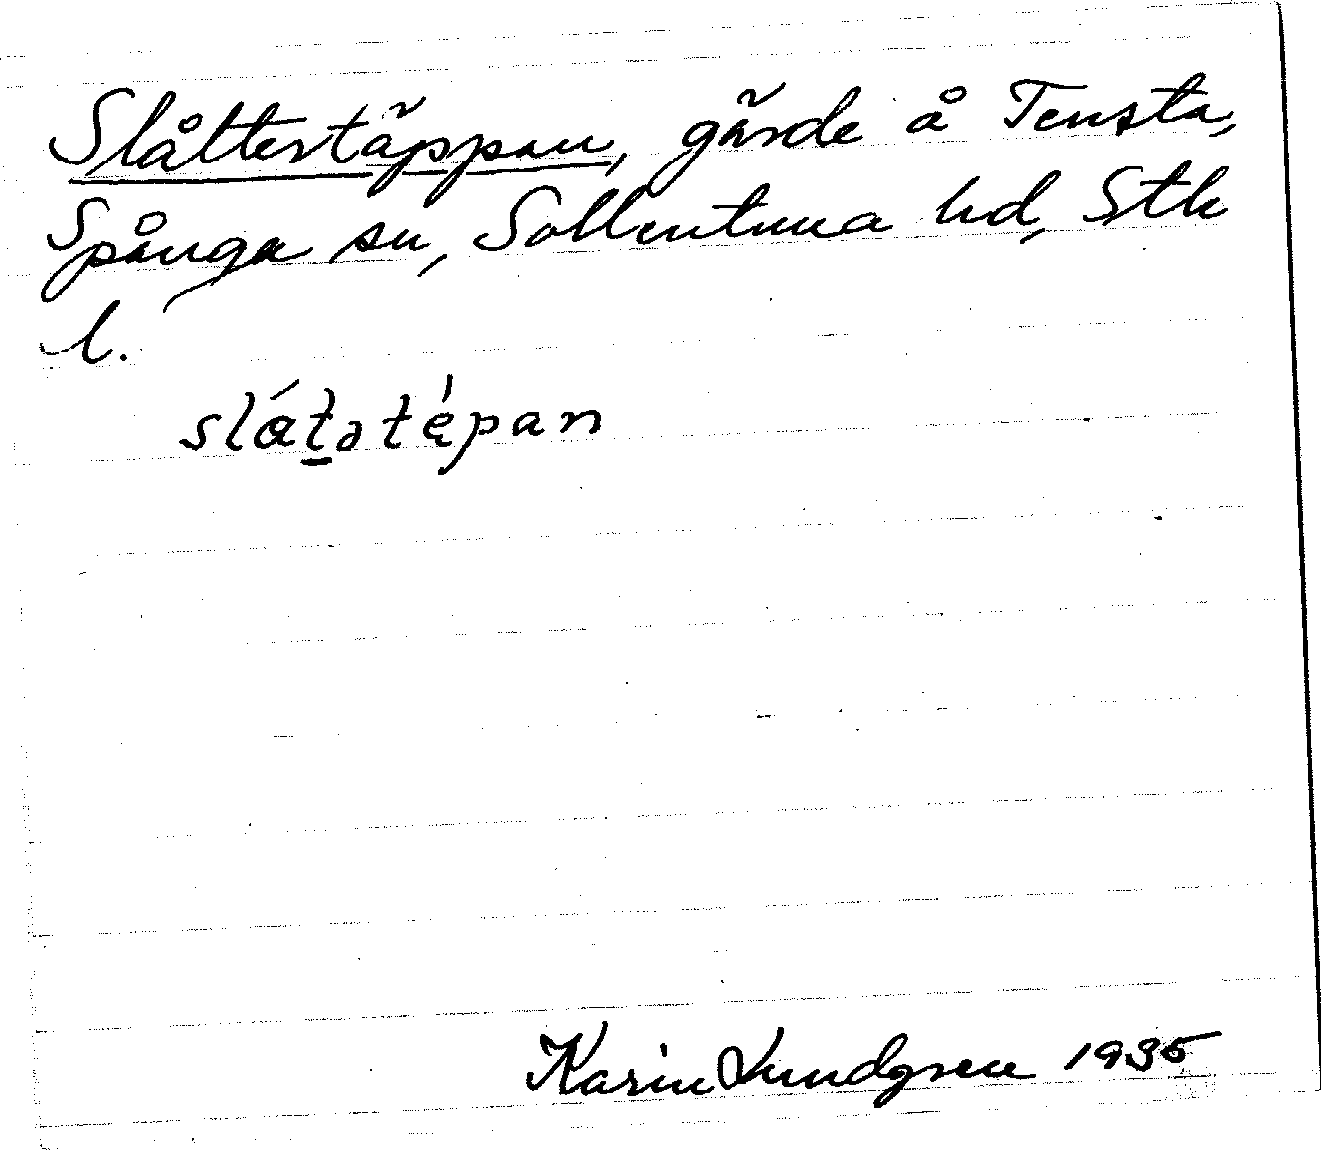 Slåttertäppan, gärde å Tensta,
Spånga sn, Sollentuna hd, Sthlms
l.
slátətę́pan
Karin Lundgren 1935